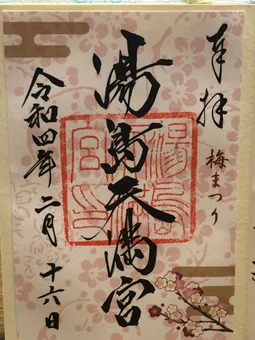 奉拝
梅まつり
湯島天満宮
湯島
天満
宮印
令和四年二月
十六日